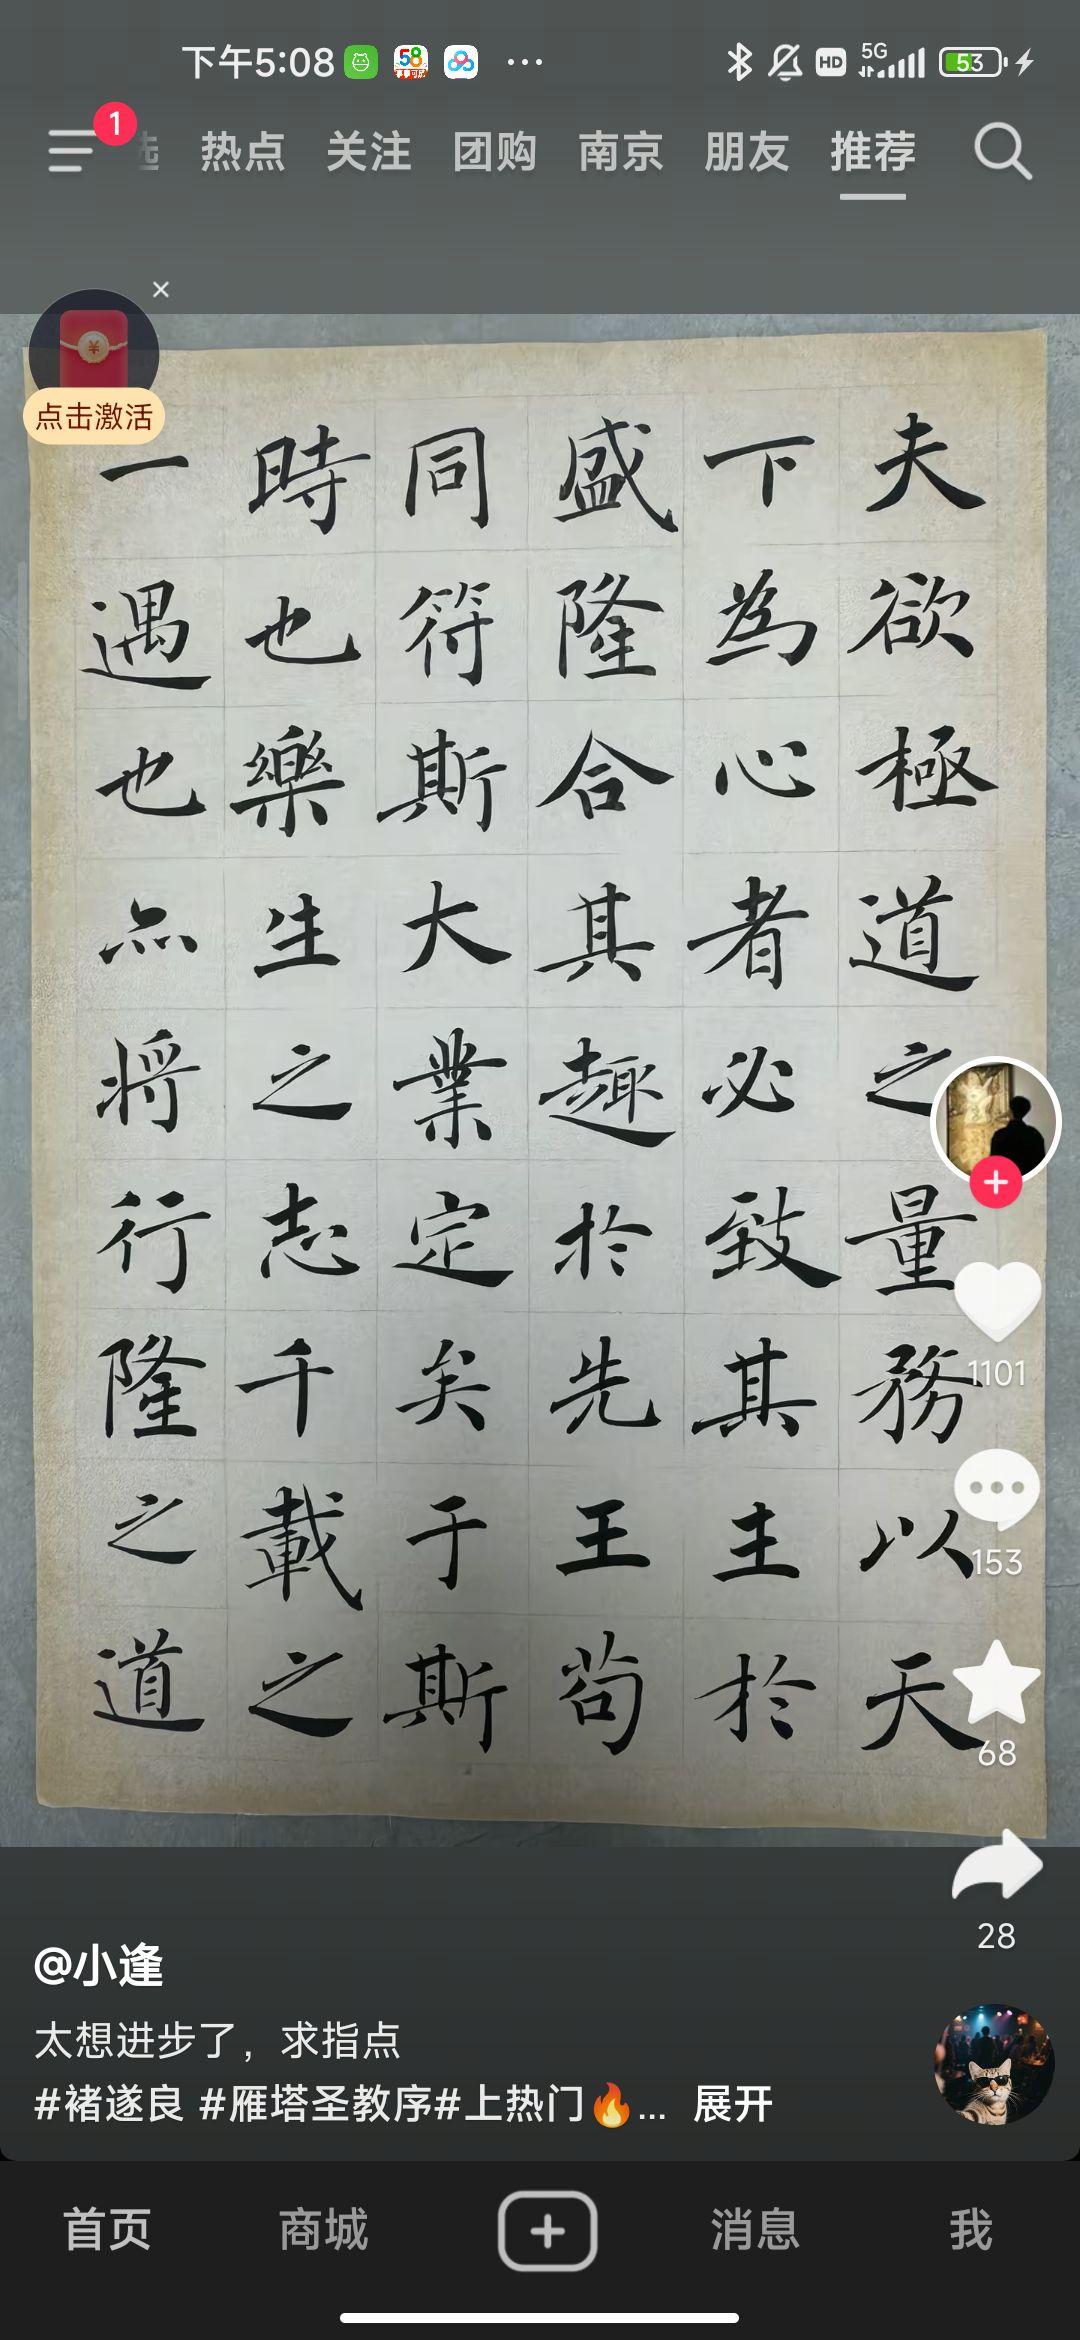 下午5:08 58 ... HD 5G 53
1
热点 关注 团购 南京 朋友 推荐
点击激活
夫欲極道之量務以天
下為心者必致其主於
盛隆合其趣於先王苟
同符斯大業定矣于斯
時也樂生之志千載之
一遇也亦将行隆之道
1101
153
68
28
@小逢
太想进步了，求指点
#褚遂良 #雁塔圣教序#上热门🔥... 展开
首页 商城 消息 我